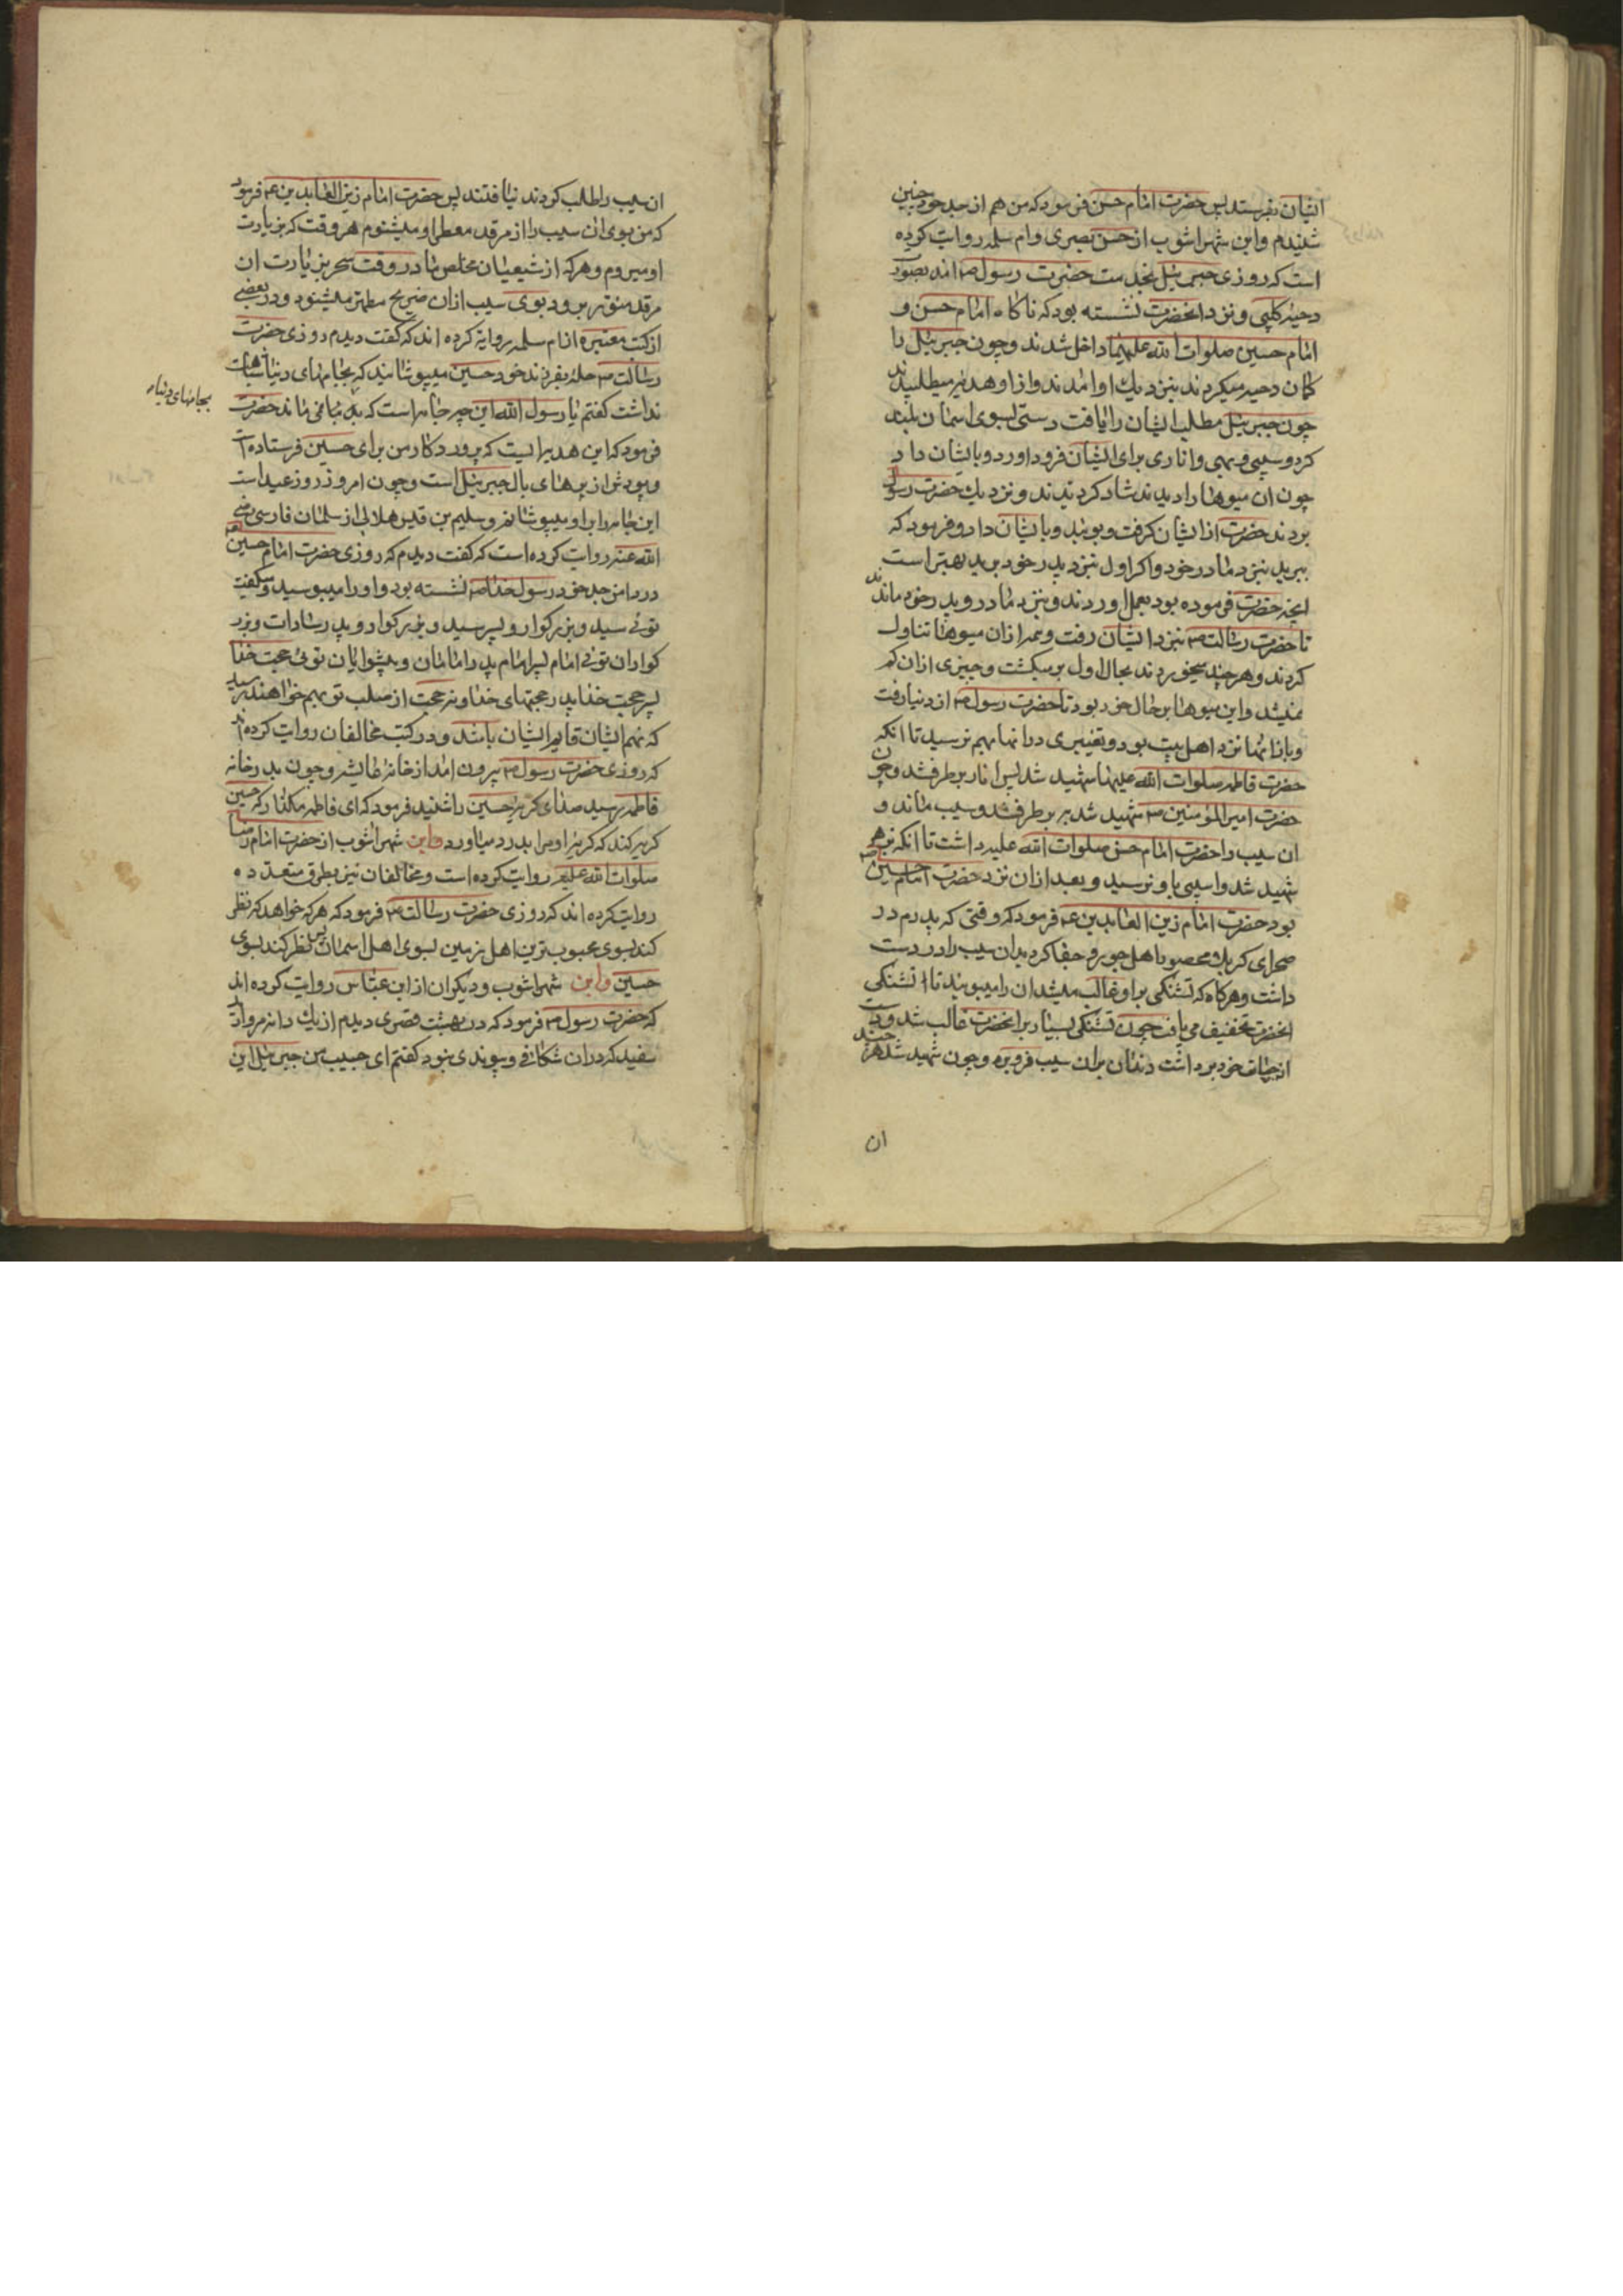 ایشان بفرستد پس حضرت امام حسن فرمود که من هم از جد خود چنین
شنیدم و ابن شهراشوب از حسن بصری و ام سلمه روایت کرده
است که روزی جبرئیل بخدمت حضرت رسول ص امد بصورت
دحیه کلبی و نزد انحضرت نشسته بود که ناکاه امام حسن و
امام حسین صلوات الله علیهما داخل شدند و چون جبرئیل را
کمان دحیه میکردند بنزدیك او امدند و از او هدیه میطلبیدند
چون جبرئیل مطلب ایشان را یافت دستی بسوی اسمان بلند
کرد و سیبی و بهی و اناری برای ایشان فرود اورد و بایشان داد
چون ان میوها را دیدند شاد کردیدند و نزدیك حضرت رسول
بردند حضرت از ایشان کرفت و بوئید و بایشان داد و فرمود که
ببرید بنزد مادر خود و اکر اول بنزد پدر خود برید بهتر است
انچه حضرت فرموده بود بعمل اوردند و بنزد مادر و پدر خود ماندند
تا حضرت رسالت ص بنزد ایشان رفت و همه از ان میوها تناول
کردند و هر چند میخوردند بحال اول برمیکشت و چیزی از ان کم
نمیشد و این میوها بر حال خود بود تا حضرت رسول ص از دنیا رفت
و باز انها نزد اهل بیت بود و تغییری در انها بهم نرسید تا انکه
حضرت فاطمه صلوات الله علیها شهید شد پس انار برطرف شد و چون
حضرت امیر المؤمنین ص شهید شد به برطرف شد و سیب ماند و
ان سیب را حضرت امام حسن صلوات الله علیه داشت تا انکه بزهر
شهید شد و اسیبی باو نرسید و بعد از ان نزد حضرت امام حسین ص
بود حضرت امام زین العابدین ع فرمود که وقتی که پدرم در
صحرای کربلا محصور اهل جور و جفا کردید ان سیب را در دست
داشت و هرکاه که تشنکی بر او غالب میشد ان را میبوئید تا تشنکی
انحضرت تخفیف می یافت چون تشنکی بسیار بر انحضرت غالب شد و دست
از حیات خود برداشت دندان بر ان سیب فرو برد و چون شهید شد هر چند
ان
ان سیب را طلب کردند نیافتند پس حضرت امام زین العابدین ع فرمود
که من بوی ان سیب را از مرقد معطر او میشنوم هر وقت که بزیارت
او میروم و هر که از شیعیان مخلص ما در وقت سحر بزیارت ان
مرقد منور برود بوی سیب از ان ضریح مطهر میشنود و در بعضی
از کتب معتبره از ام سلمه روایة کرده اند که گفت دیدم روزی حضرت
رسالت ص حلۀ بفرزند خود حسین میپوشانید که بجامهای دنیا شباهت
بجامهای دنیاه
نداشت کفتم یا رسول الله این چه جامه است که بجامهای ما نماند حضرت
فرمود که این هدیه ایست که پروردکار من برای حسین فرستاده است
و پودش از پرهای بال جبرئیل است و چون امروز روز عید است
این جامه را بر او میپوشانم و سلیم بن قیس هلالی از سلمان فارسی رضی
الله عنه روایت کرده است که کفت دیدم که روزی حضرت امام حسین
در دامن جد خود رسول خدا ص نشسته بود و او را میبوسید و میکفت
توئی سید و بزرکوار و پسر سید و بزرکوار و پدر سادات و بزر
کواران توئی امام پسر امام پدر امامان و پیشوایان توئی حجت خدا
پسر حجت خدا پدر حجتهای خدا و نه حجت از صلب تو بهم خواهند رسید
که نهم ایشان قایم ایشان باشد و در کتب مخالفان روایت کرده اند
که روزی حضرت رسول ص بیرون امد از خانه عایشه و چون بدر خانه
فاطمه رسید صدای کریه حسین را شنید فرمود که ای فاطمه مکذار که حسین
کریه کند که کریه او مرا بدرد میاورد و ابن شهراشوب از حضرت امام رضا
صلوات الله علیه روایت کرده است و مخالفان نیز بطرق متعدده
روایت کرده اند که روزی حضرت رسالت ص فرمود که هر که خواهد که نظر
کند بسوی محبوب ترین اهل زمین بسوی اهل اسمان پس نظر کند بسوی
حسین و ابن شهراشوب و دیکران از ابن عباس روایت کرده اند
که حضرت رسول ص فرمود که در بهشت قصری دیدم از یك دانه مروارید
سفید که در ان شکافی و پیوندی نبود کفتم ای حبیب من جبرئیل این